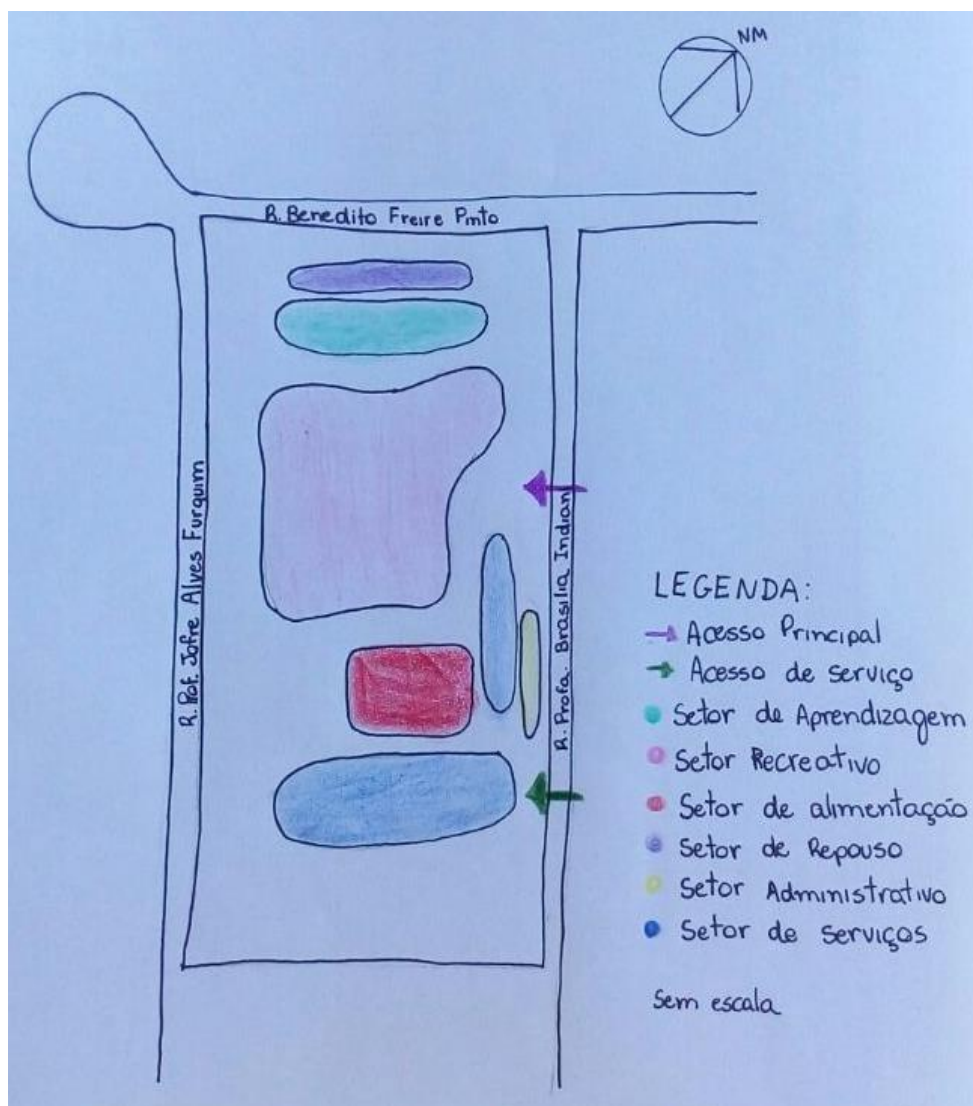 NM
R. Benedito Freire Pinto
R. Prof. Jofre Alves Furquim
R. Profa. Brasilia Indian
LEGENDA:
Acesso Principal
Acesso de serviço
Setor de Aprendizagem
Setor Recreativo
Setor de alimentação
Setor de Repouso
Setor Administrativo
Setor de serviços
Sem escala